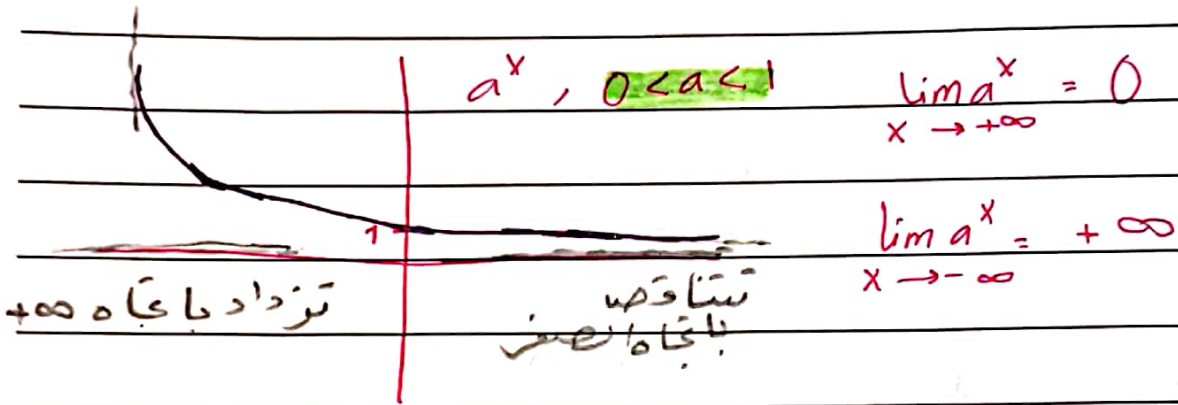 a^x , 0 < a < 1
lim a^x = 0
x → +∞
1
lim a^x = +∞
x → -∞
تزداد باتجاه +∞
تتناقص
باتجاه الصفر